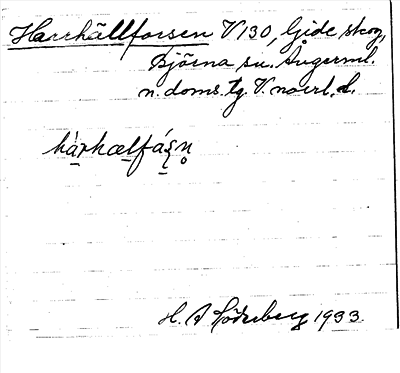 Harrhällforsen V 130, Gide skog,
Björna sn. Ångerml.
n. doms. tg. V. norrl. d.
hàrhælfá𝑠n̥
H. A Söderberg 1933.